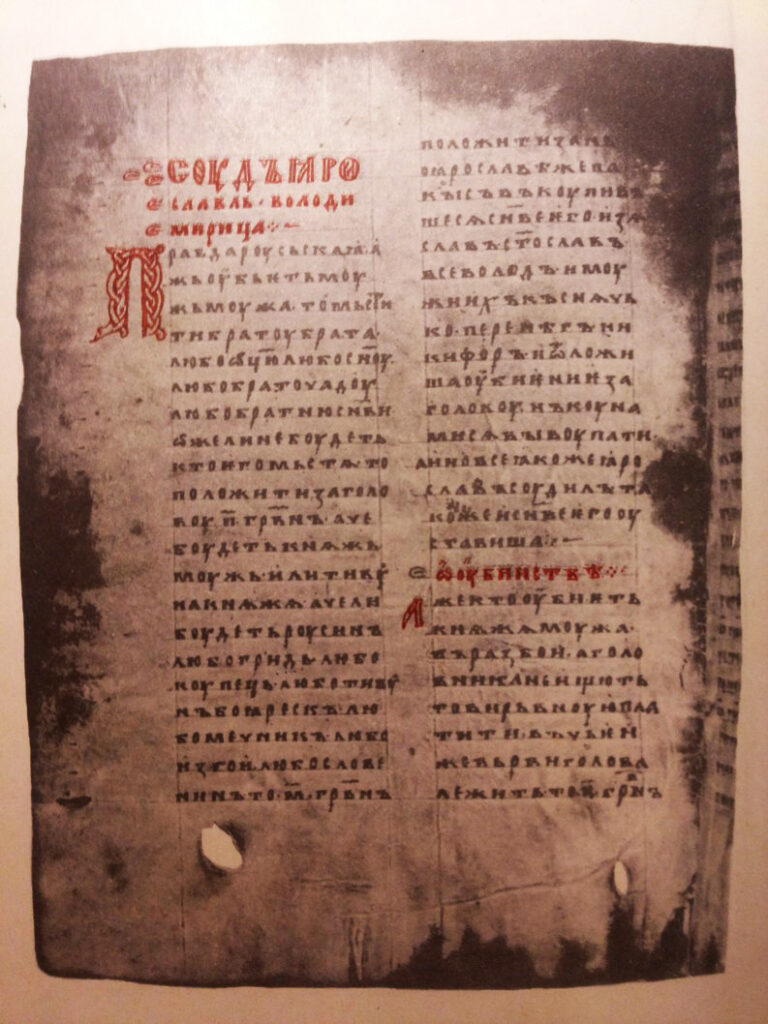 СОУДЪ ꙖРО
СЛАВЛЬ · ВОЛОДИ
МИРИЦА
Правда роусьскаꙗ · а
жь оубьѥть моу
жь моужа · то мьсти
ти братоу брата
любо ѡцю любо сн҃оу
любо братоучадоу
любо братню сн҃ви
ѡже ли не боудеть
кто ѥго мьстѧ то
положити за голо
воу · п҃ · грвнъ · аче
боудеть кнѧжь
моужь · или тивоу
на кнѧжѧ · аче ли
боудеть роусинъ
любо гридь · любо
коупець · любо тивоу
нъ боꙗрескъ · лю
бо мечникъ · либо
изгои · любо слове
нинъ то · м҃ · грвнъ
положити за нь
ꙗрославѣ же
въкоупивъ
шесѧ сн҃ве ѥго изѧ
славъ ст҃ославъ
всеволодъ и моу
жи ихъ къснѧчь
ко · перенѣгъ ни
кифоръ и ѡтложи
ша оубиѥниѥ за
голову · нъ коуна
ми сѧ выкоупати
а ино все ꙗкоже ꙗро
славъ соудилъ та
коже и сн҃ве ѥго оу
ставиша
ѡ оубииствѣ
Аже кто оубиѥть
кнѧжа моужа ·
въ разбои · а голо
вника не ищють
то вирьвноую пла
тити · въ чьѥи
же вьрви голова
лежить то · п҃ · грвнъ